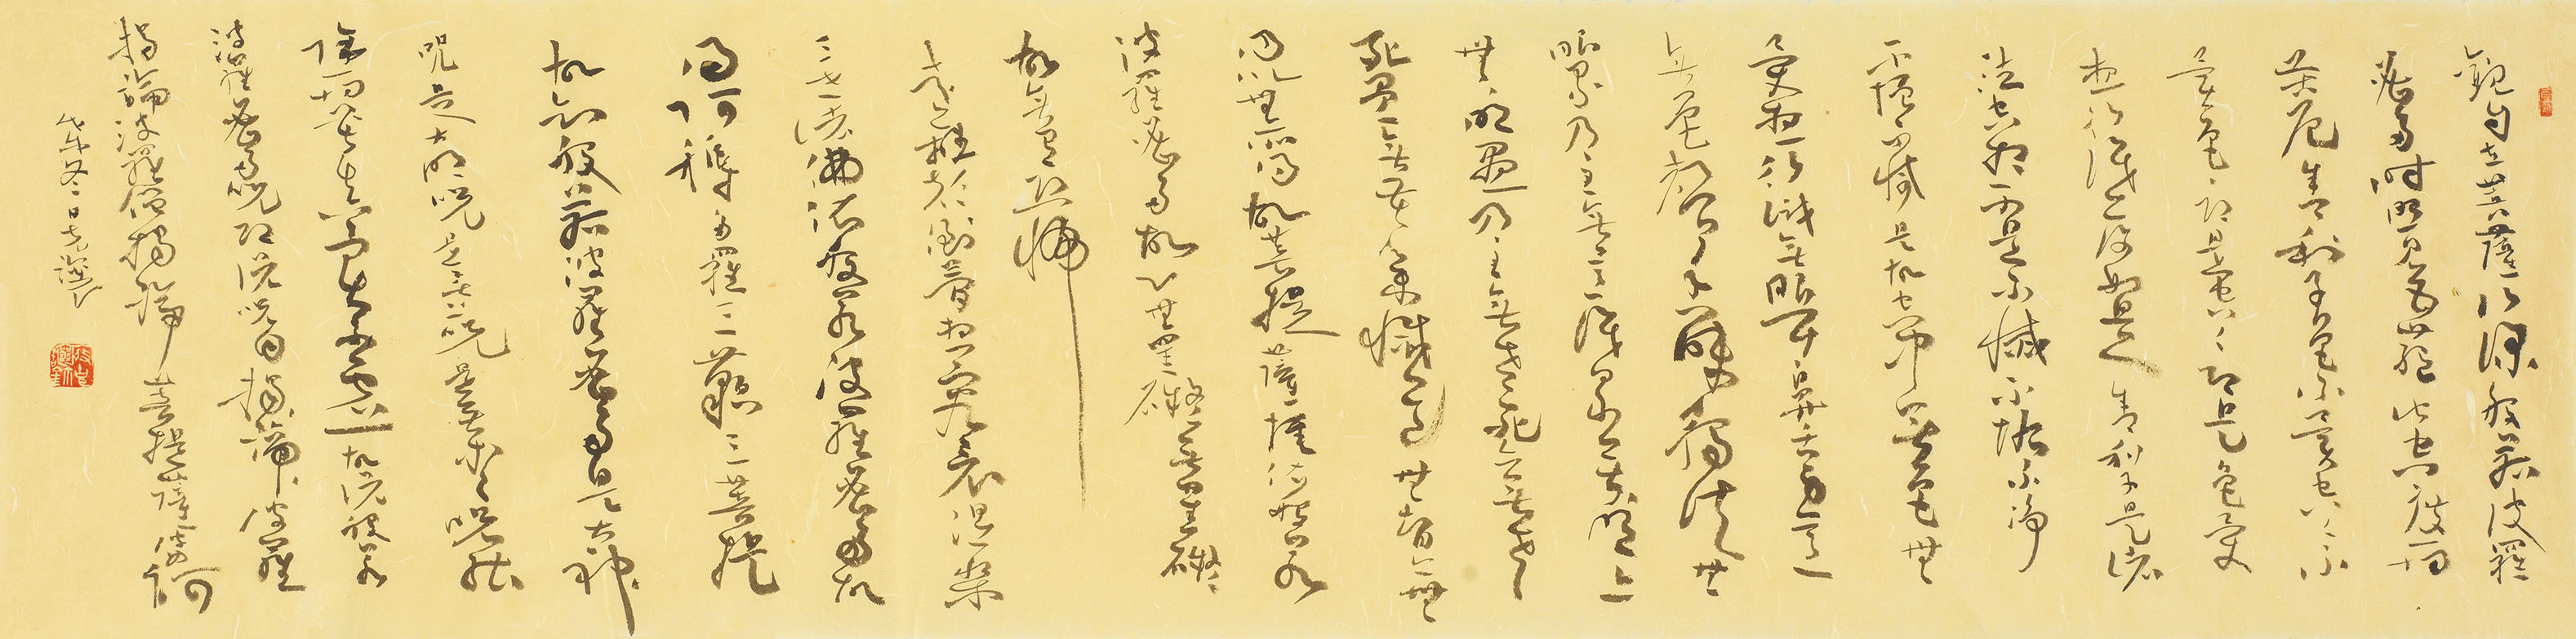 觀自在菩薩行深般若波羅
蜜多時照見五蘊皆空度一切
苦厄舍利子色不異空空不
異色色即是空空即是色受
想行識亦復如是舍利子是諸
法空相不生不滅不垢不淨
不增不減是故空中無色無
受想行識無眼耳鼻舌身意
無色聲香味觸法無
眼界乃至無意識界無無明亦
無無明盡乃至無老死亦無老
死盡無苦集滅道無智亦無
得以無所得故菩提薩埵依般若
波羅蜜多故心無罣礙無罣礙
故無有恐怖
遠離顛倒夢想究竟涅槃
三世諸佛依般若波羅蜜多故
得阿耨多羅三藐三菩提
故知般若波羅蜜多是大神
咒是大明咒是無上咒是無等等咒能
除一切苦真實不虛故說般若
波羅蜜多咒即說咒曰揭諦揭諦波羅
揭諦波羅僧揭諦菩提薩婆訶
冬日